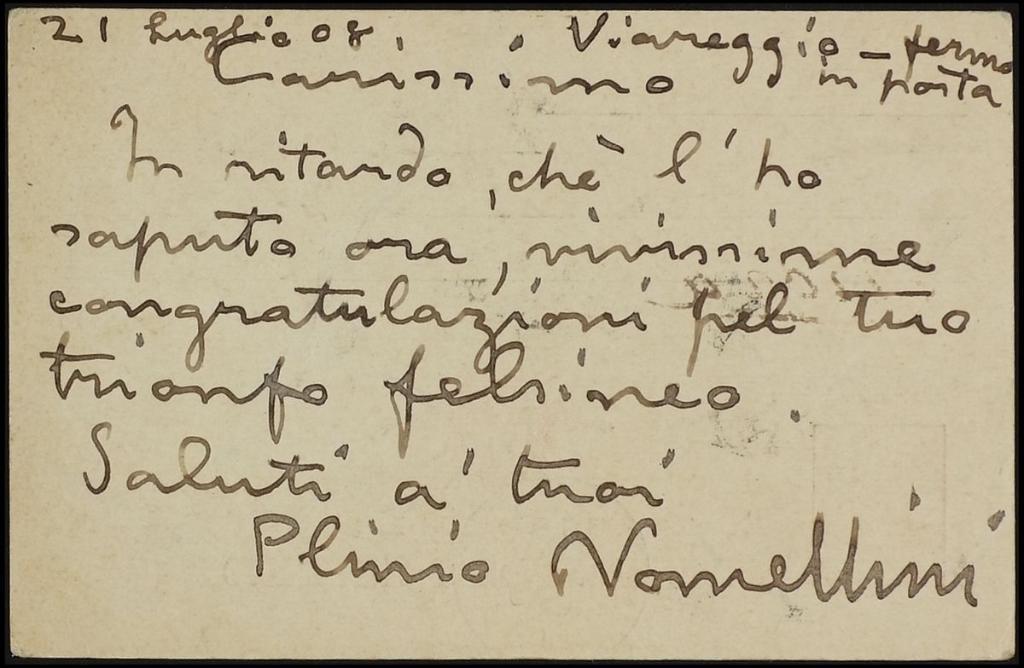 21 Luglio 08. Viareggio - fermo
in posta
Carissimo
In ritardo, chè l'ho
saputo ora, vivissime
congratulazioni pel tuo
trionfo felsineo.
Saluti a' tuoi
Plinio Nomellini